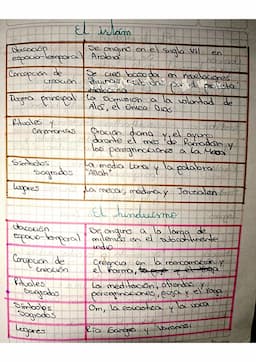 El islam
Ubicación Se origino en el siglo VII en
espacio-temporal Arabia
Concepción de Se creo basada en revelaciones
creación
Dogma principal La sumisión a la voluntad de
Alá, el único Dios
Rituales y
Ceremonias Oración diaria y el ayuno
durante el mes de Ramadán y
las peregrinaciones a la Meca
Símbolos La media luna y la palabra
Sagrados "Allah"
Lugares La meca, medina, y Jerusalen
El hinduismo
Ubicación Se origino a lo largo de
espacio-temporal milenios en el subcontinente
indio
Concepcion de Creencia en la reencarnación y
creación el Karma,
Rituales La meditación, ofrendas y
Sagrados peregrinaciones, puja y el Yoga
Símbolos Om, la esvastica y la vaca
Sagrados
Lugares Río Ganges y Varanasi